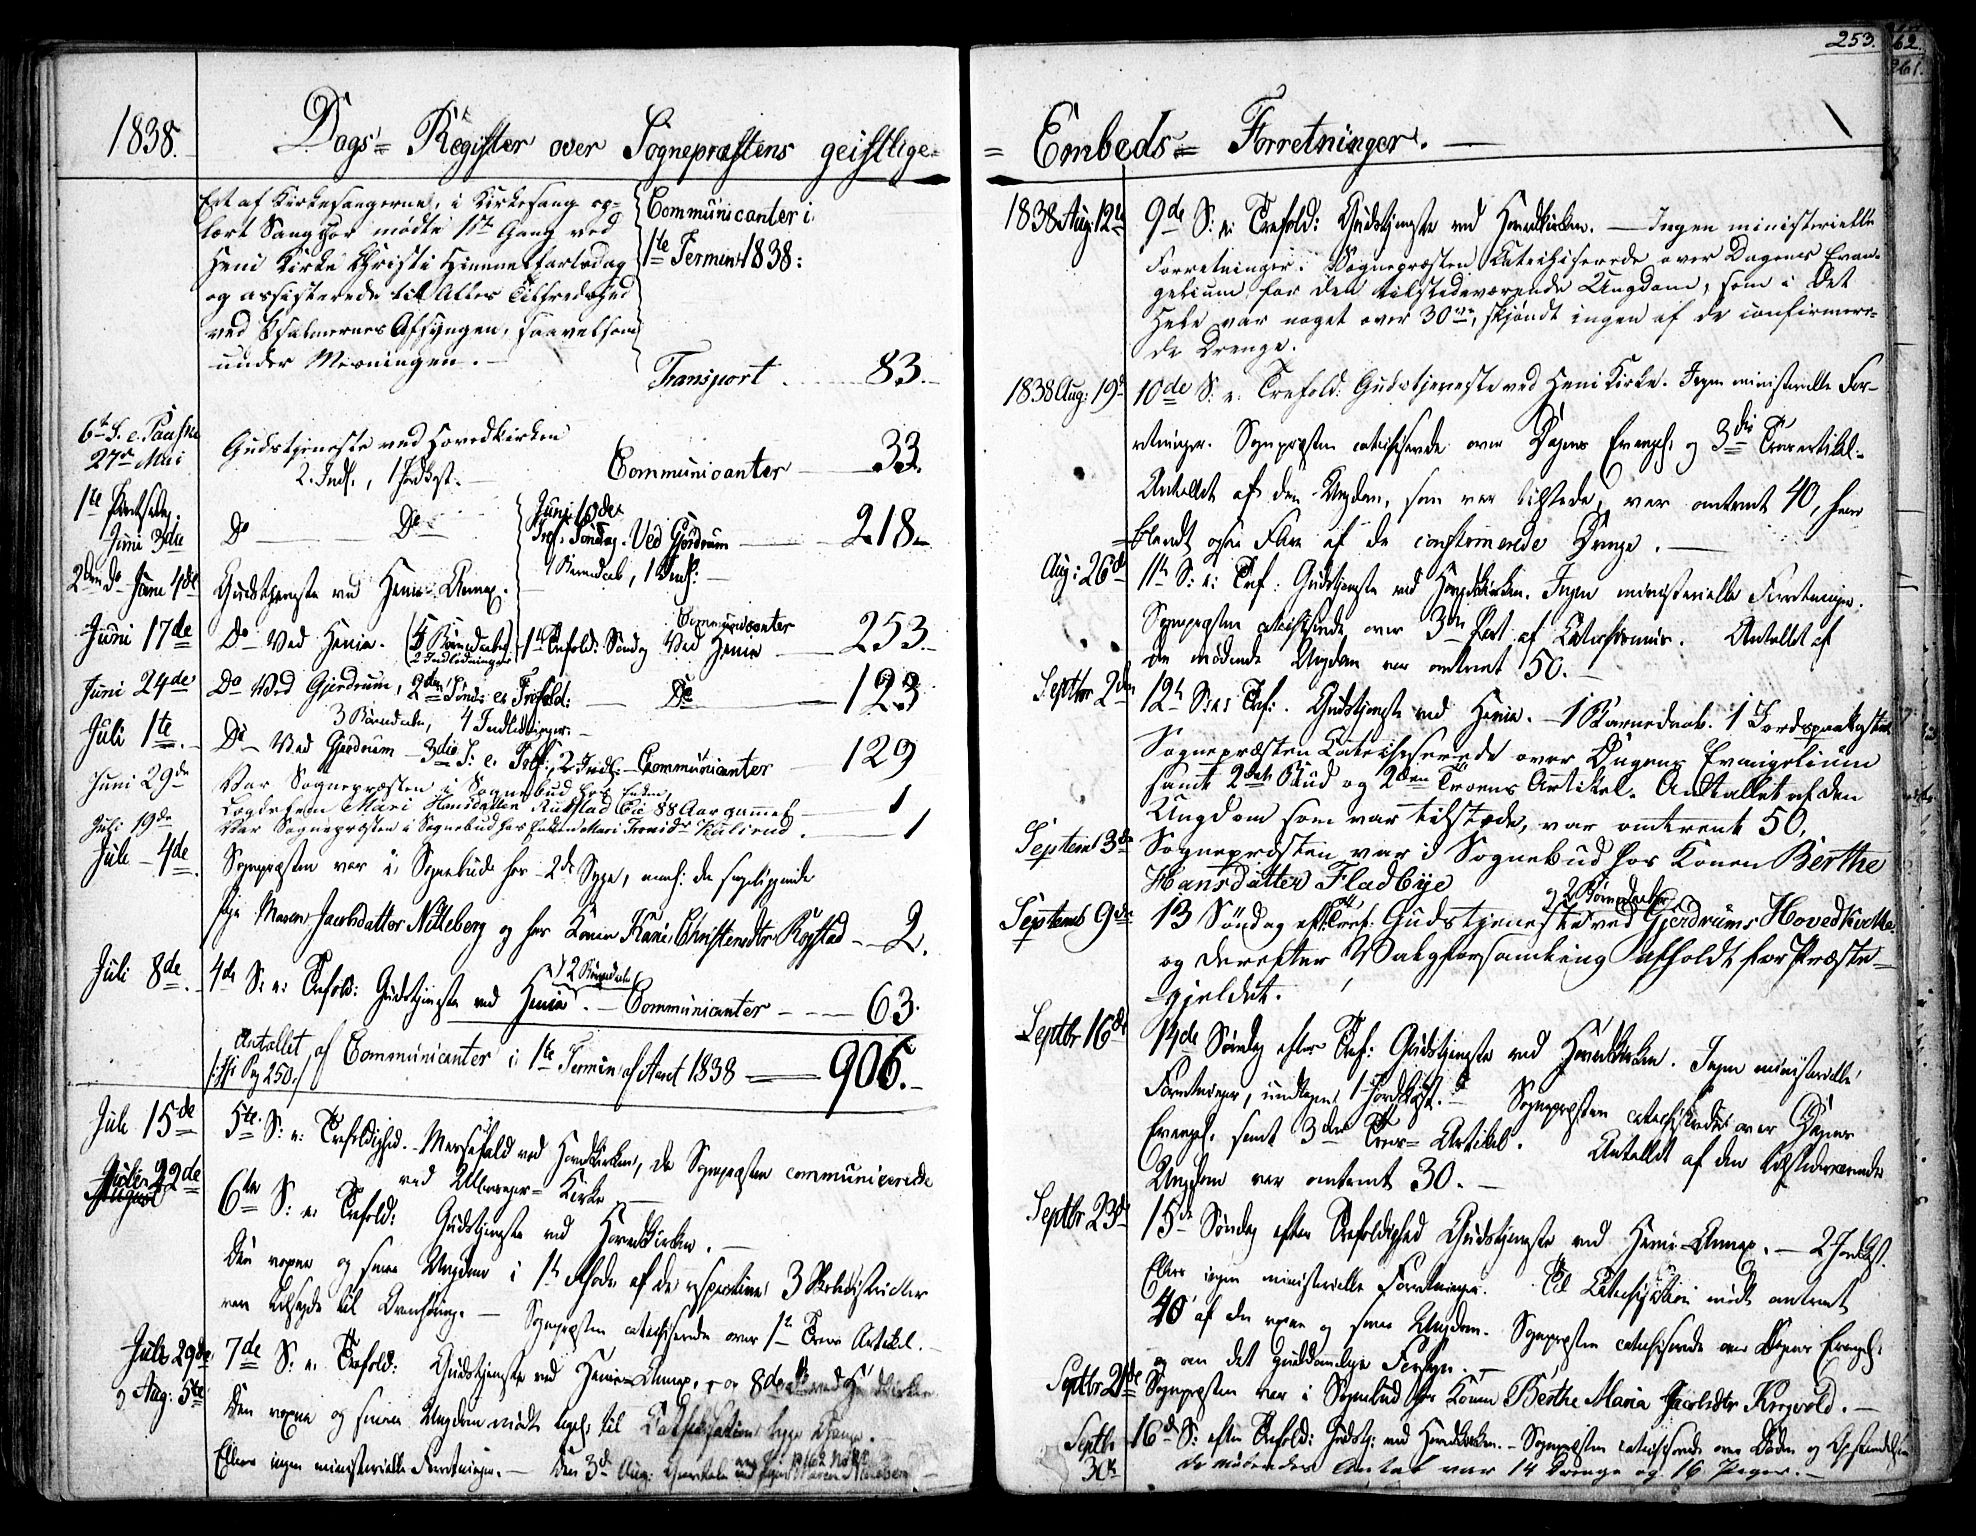 1838.
Dags= Register over Sognepræstens geistlige=
Et af Kirkesangerne, i Kirkesang op=
lært Sang Chor mødte 1ste Gang ved
Heni Kirke Christi Himmelfartsdag
og assisterede til Alles Tilfredshed
ved Psalmernes Afsyngen, saavelsom
under Messningen. —
Communicanter i
1te Termin 1838:
Transport . . . 83.—
6te S. e. Paaske
27de Mai
Gudstjeneste ved Hovedkirken
2. Indl., 1 Jordkast. —
Communicanter — 33.
1te Pintsedag.
Juni 3die
Do — Do
Juni 10de
Tref. Søndag. Ved Gjerdrum — 218.—
1 Barnedaab, 1 Indl. —
2den do Juni 4de
Gudstjeneste ved Heni-Annex.
Juni 17de
Do Ved Henie. (5 Barnedaab, 2 Indledninger) 1te Trefold: Søndag Communicanter Ved Henie — 253.—
Juni 24de
Do Ved Gjerdrum, 2den Sønd: e. Trefold: — Do — 123
3 Barnedaab, 4 Indledninger. —
Juli 1te.
Do Ved Gjerdrum — 3die S: e. Tref:, 2 Indl: — Communicanter — 129
Juni 29de
Var Sognepræsten i Sognebud hos Enken,
Mari Hansdatter Rustad Eie 88 Aar gammel — 1
Juli 19de
Var Sognepræsten i Sognebud hos Enken Mari — 1
Juli — 4de
Sognepræsten var i Sognebude hos 2de Syge, nemlig de sengeliggende
Pige Maren Jacobsdatter Nitteberg og hos Konen Kari Christensdtr Rogstad — 2.
Juli 8de.
4de S: e: Trefold: Gudstjeneste ved Henie. 2 Barnedaab — Communicanter — 63.
Antallet af Communicanter i 1te Termin af Aaret 1838 — 906.—
Pag 250.
Juli 15de
5te S: e: Trefoldighed. Messefald ved Hovedkirken, da Sognepræsten communicerede
ved Ullensager= Kirke —
Juli 22de
6te S: e: Trefold: Gudstjeneste ved Hovedkirken. —
Den voxne og smaa Ungdom i 1te af de 3 Skoledistricter
var tilsagde til Overhøring. — Sognepræsten catechiserede over 1te Troes Artikel. —
Juli 29de
& Aug: 5te
7de S: e. Trefold: Gudstjeneste ved Henie-Annex, og 8de ved Hovedkirken
Den voxne og smaa Ungdom mødte til Catechisation
Ellers ingen ministerielle Forretninger. — Den 3de Aug:
253.
62.
261.
= Embeds= Forretninger. —
1838 Aug: 12te
9de S: e: Trefold: Gudstjeneste ved Hovedkirken. — Ingen ministerielle
Forretninger. Sognepræsten Katechiserede over Dagens Evan=
gelium for den tilstedeværende Ungdom, som i Det
Hele var noget over 30, skjøndt ingen af de confirmere=
de Drenge.
1838 Aug: 19de
10de S: e. Trefold: Gudstjeneste ved Heni Kirke. Ingen ministerielle For=
retninger. Sognepræsten catechiserede over Dagens Evangel: og 3die Troesartikel.
Antallet af den Ungdom, som var tilstede, var omtrent 40, her=
iblandt ogsaa Flere af de confirmerede Drenge. —
Aug: 26de
11te S: e: Tref: Gudstjeneste ved Hovedkirken. Ingen ministerielle Forretninger.
Sognepræsten catechiserede over 3die Part af Catechismus. Antallet af
den mødende Ungdom var omtrent 50. —
Septbr 2den
12te S: e: Tref: Gudstjeneste ved Henie. — 1 Barnedaab. 1 Jordpaakastelse
Sognepræsten Catechiserede over Dagens Evangelium
samt 2det Bud og 2den Troens Artikel. Antallet af den
Ungdom som var tilstede, var omtrent 50,
Septemb 3die
Sognepræsten var i Sognebud hos Konen Berthe
Hansdatter Fladbye
Septemb 9de
13 Søndag eft: Tref: Gudstjeneste ved Gjerdrums Hovedkirke
og 2 Barnedaab
og derefter Valgforsamling afholdt for Præste=
gjeldet.
Septbr 16de
14de Søndag efter Tref: Gudstjeneste ved Hovedkirken. Ingen ministerielle
Forretninger, undtagen 1 Jordkast. — Sognepræsten catechiserede over Dagens
Evangel: samt 3die Troes= Artikel. Antallet af den tilstedeværende
Ungdom var omtrent 30. —
Septbr 23de
15de Søndag efter Trefoldighed Gudstjeneste ved Heni-Annex. — 2 Jordkast.
Ellers ingen ministerielle Forretninger. Til Catechisation mødte omtrent
40 af den voxne og smaa Ungdom. Sognepræsten catechiserede over Dagens Evangel:
og om det
Septbr
Sognepræsten var i Sognebud hos Konen Berthe Maria Jacobsdtr Kogvold. —
Septbr 30te
16de S: efter Trefold: Gudstj: ved Hovedkirken. — Sognepræsten catechiserede over Døden og Opstandelsen
De mødendes Antal var 14 Drenge og 16 Piger. —